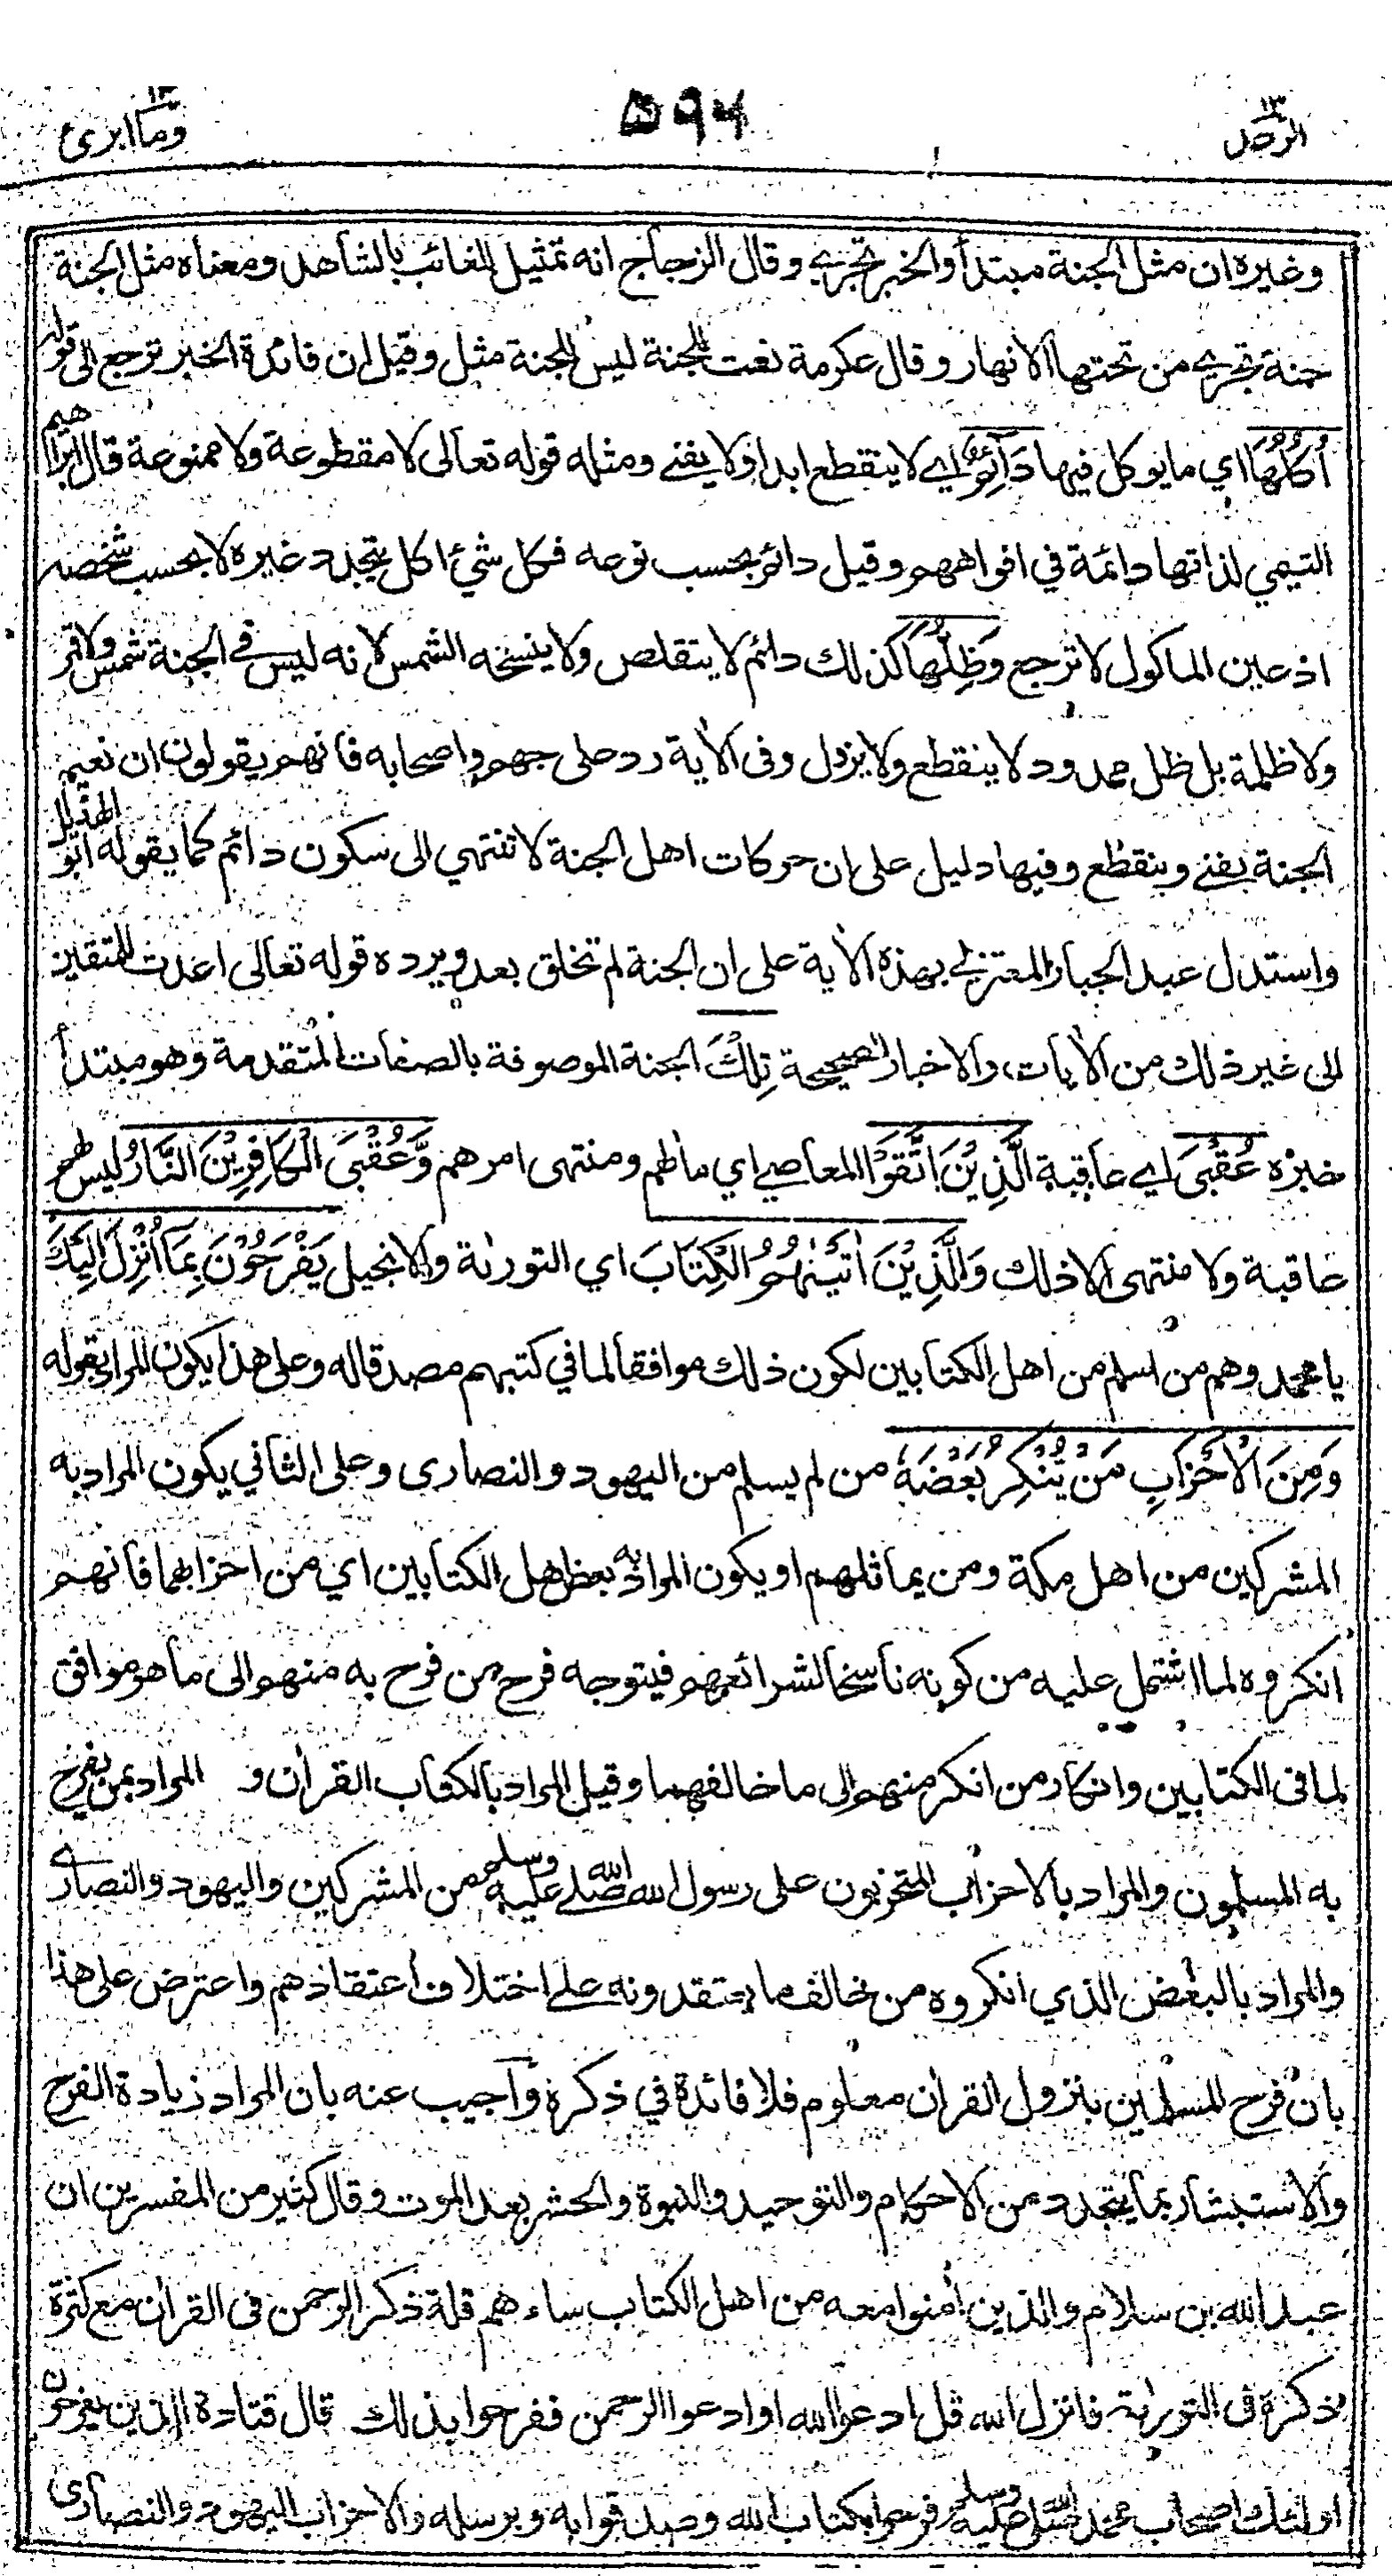 الرعد ١٣
٥٩٤
وما ابرئ ١٣
وغيره ان مثل الجنة مبتدأ والخبر تجري وقال الزجاج انه تمثيل للغائب بالشاهد ومعناه مثل الجنة
جنة تجري من تحتها الانهار وقال عكرمة نعت للجنة ليس للجنة مثل وقيل ان فائدة الخبر ترجع الى قوله
اُكُلُهَا اي ما يوكل فيها دَآئِمٌ اي لا ينقطع ابدا ولا يفنى ومثله قوله تعالى لا مقطوعة ولا ممنوعة قال ابراهيم
التيمي لذاتها دائمة في افواههم وقيل دائم بحسب نوعه فكل شيء اكل يتجدد غيره لا بحسب شخصه
اذ عين الماكول لا ترجع وَظِلُّهَا كذلك دائم لا يتقلص ولا ينسخه الشمس لانه ليس في الجنة شمس ولا قمر
ولا ظلمة بل ظل ممدود لا ينقطع ولا يزول وفى الاٰية رد على جهم واصحابه فانهم يقولون ان نعيم
الجنة يفنى وينقطع وفيها دليل على ان حركات اهل الجنة لا تنتهي الى سكون دائم كما يقوله ابو الهذيل
واستدل عبد الجبار المعتزلي بهذه الاٰية على ان الجنة لم تخلق بعد ويرده قوله تعالى اعدت للمتقين
الى غير ذلك من الاٰيات والاخبار الصحيحة تِلْكَ الجنة الموصوفة بالصفات المتقدمة وهو مبتدأ
خبره عُقْبَى اي عاقبة الَّذِيْنَ اتَّقَوْا المعاصي اي مالهم ومنتهى امرهم وَّعُقْبَى الْكَافِرِيْنَ النَّارُ ليس لهم
عاقبة ولا منتهى الا ذلك وَالَّذِيْنَ اٰتَيْنٰهُمُ الْكِتَابَ اي التورىٰة والانجيل يَفْرَحُوْنَ بِمَا اُنْزِلَ اِلَيْكَ
يا محمد وهم من اسلم من اهل الكتابين لكون ذلك موافقا لما في كتبهم مصدقا له وعلى هذا يكون المراد بقوله
وَمِنَ الْاَحْزَابِ مَنْ يُّنْكِرُ بَعْضَهٗ من لم يسلم من اليهود والنصارى وعلى الثاني يكون المراد به
المشركين من اهل مكة ومن يماثلهم او يكون المراد به بعض اهل الكتابين اي من احزابهما فانهم
انكروه لما اشتمل عليه من كونه ناسخا لشرائعهم فيتوجه فرح من فرح به منهم الى ما هو موافق
لما فى الكتابين وانكار من انكر منهم الى ما خالفهما وقيل المراد بالكتاب القراٰن و المراد بمن يفرح
به المسلمون والمراد بالاحزاب المتحزبون على رسول الله صلى الله عليه وسلم من المشركين واليهود والنصارى
والمراد بالبعض الذي انكروه من خالف ما يعتقدونه على اختلاف اعتقادهم واعترض على هذا
بان فرح المسلمين بنزول القراٰن معلوم فلا فائدة في ذكره واجيب عنه بان المراد زيادة الفرح
والاستبشار بما يتجدد من الاحكام والتوحيد والنبوة والحشر بعد الموت وقال كثير من المفسرين ان
عبد الله بن سلام والذين اٰمنوا معه من اهل الكتاب ساءهم قلة ذكر الرحمن فى القراٰن مع كثرة
ذكره فى التورىٰة فانزل الله قل ادعوا الله او ادعوا الرحمن ففرحوا بذلك قال قتادة الذين يفرحون
اولئك اصحاب محمد صلى الله عليه وسلم فرحوا بكتاب الله وصدقوا به وبرسله والاحزاب اليهود والنصارى